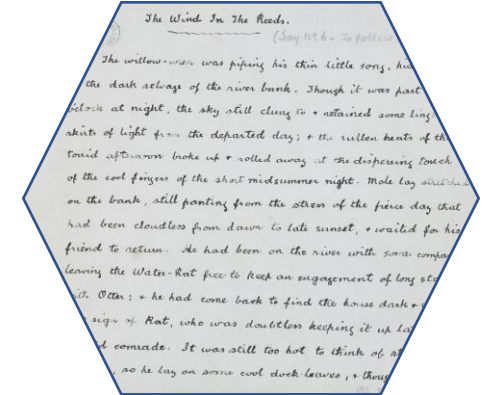 The Wind In The Reeds.
(Say No. 6 - To follow
The willow-wren was piping his thin little song,
the dark selvage of the river bank. Though it was past
o'clock at night, the sky still clung to & retained some
skirts of light from the departed day; & the sullen heats of the
torrid afternoon broke up & rolled away at the dispersing touch
of the cool fingers of the short midsummer night. Mole lay stretched
on the bank, still panting from the stress of the fierce day that
had been cloudless from dawn to late sunset, & waited for his
friend to return. He had been on the river with some
leaving the Water-Rat free to keep an engagement of long
with Otter; & he had come back to find the house dark &
sign of Rat, who was doubtless keeping it up
comrade. It was still too hot to think of
, so he lay on some cool dock-leaves, &